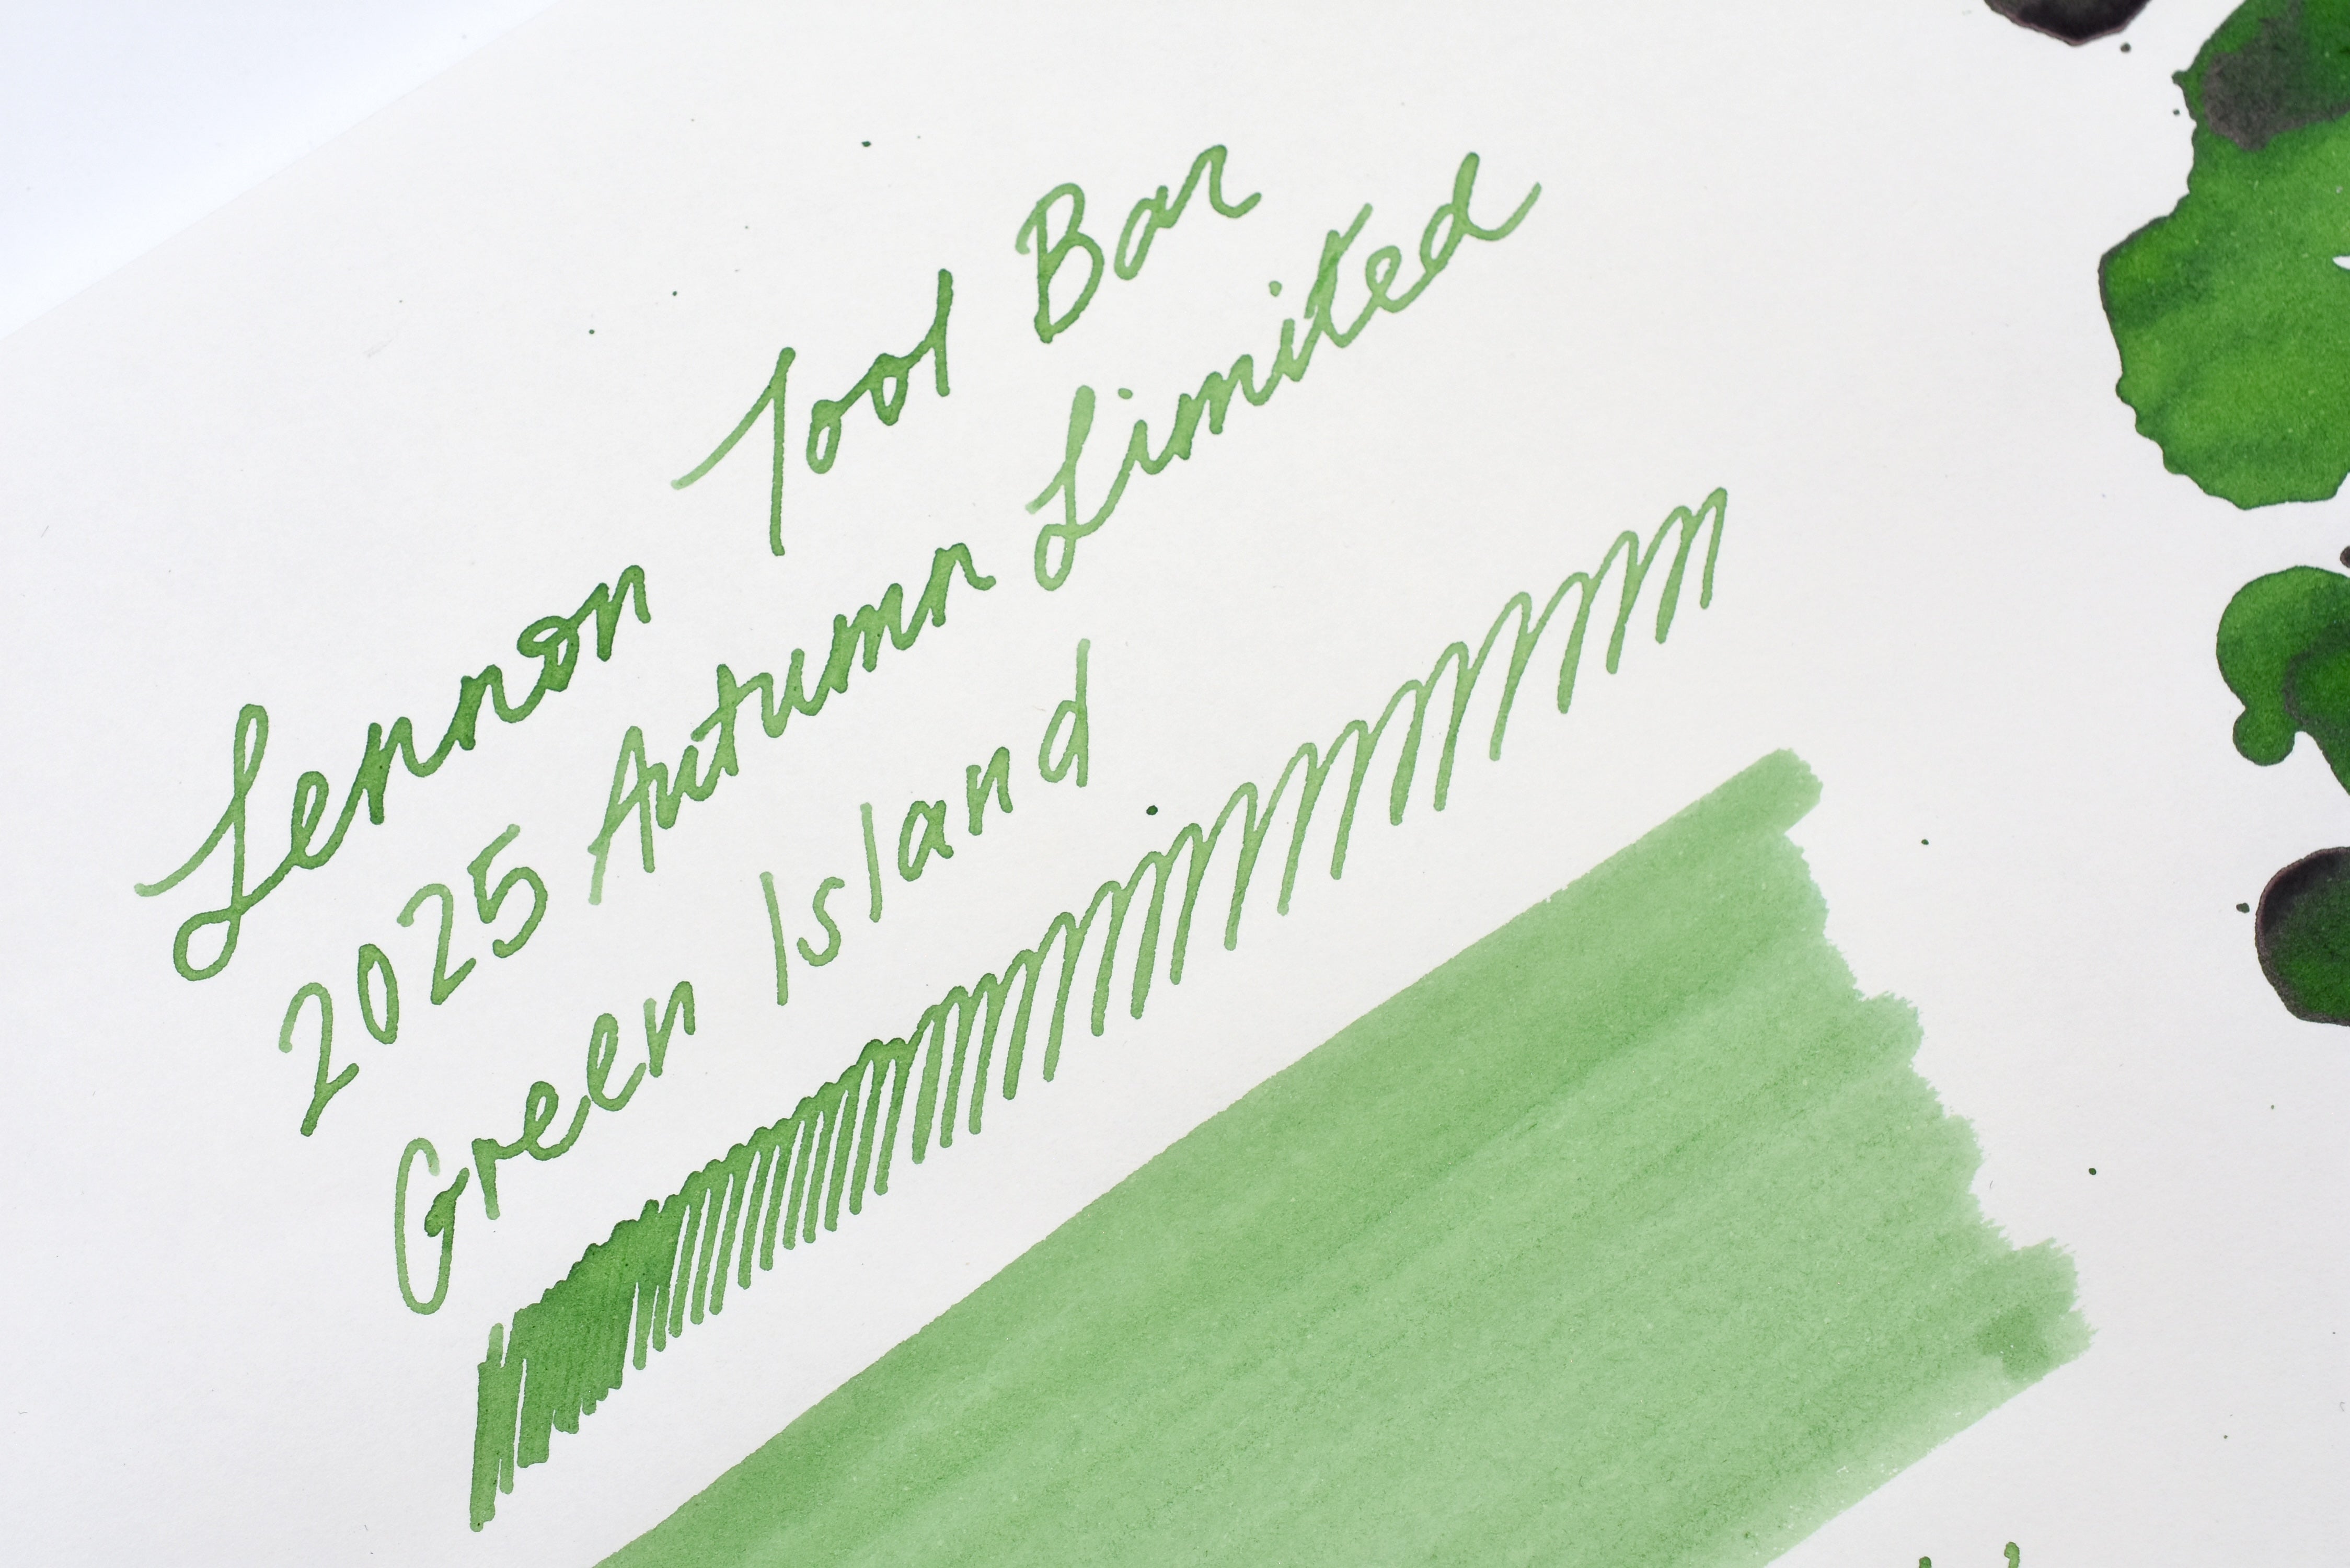 Lennon Tool Bar
2025 Autumn Limited
Green Island